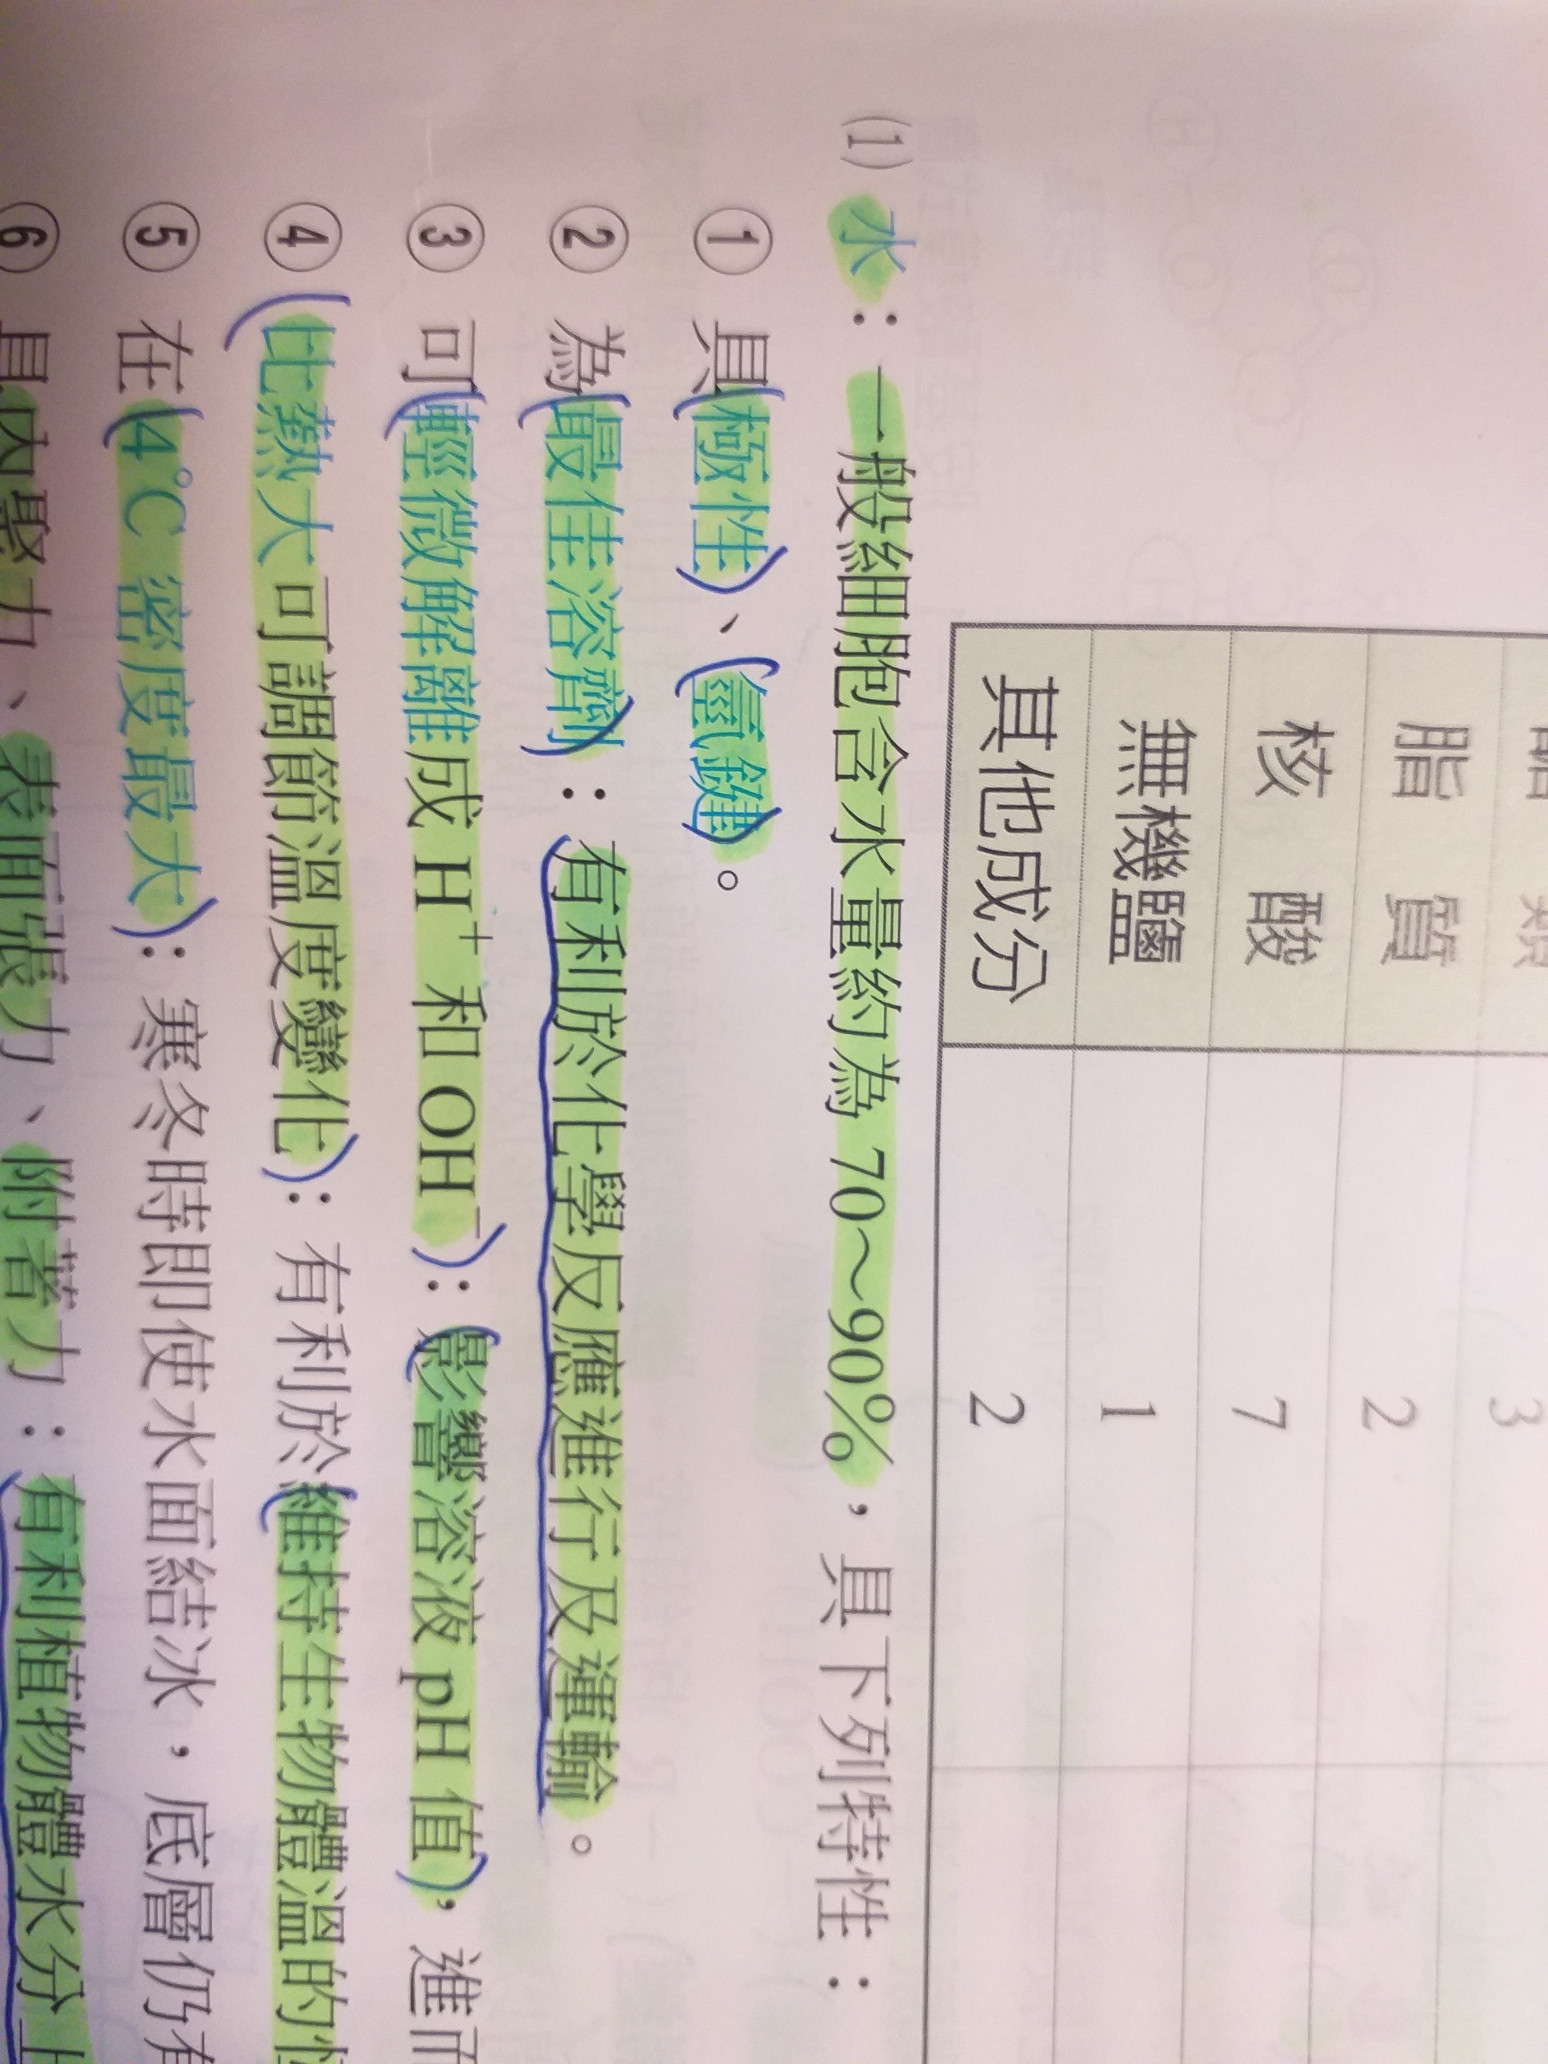 類 3
脂 質 2
核 酸 7
無機鹽 1
其他成分 2
(1) 水：一般細胞含水量約為 70～90%，具下列特性：
① 具(極性)、(氫鍵)。
② 為(最佳溶劑)：有利於化學反應進行及運輸。
③ 可(輕微解離成 H⁺ 和 OH⁻)：(影響溶液 pH 值)，進而
④ (比熱大可調節溫度變化)：有利於(維持生物體溫的恆
⑤ 在(4℃ 密度最大)：寒冬時即使水面結冰，底層仍有
⑥ 具內聚力、表面張力、附著力：(有利植物體水分上